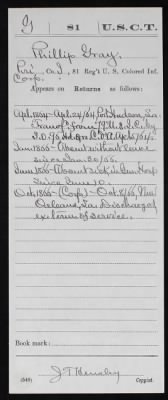 G | 81 | U.S.C.T.
Phillip Gray.
Pri, Co. I, 81 Reg't U. S. Colored Inf.
Corp.
Appears on Returns as follows:
Apr. 1864 - Apr. 24/64, Port Hudson, La.
June 1865 - Absent without leave
since Jan. 30/65.
June 1865 - Absent sick in Gen. Hosp
since June 10.
Oct. 1865 (Corp) - Oct. 8/65, New
Orleans, La. Discharged
ex. term of service.
Book mark:
J. T. Hensley
(549) Copyist.